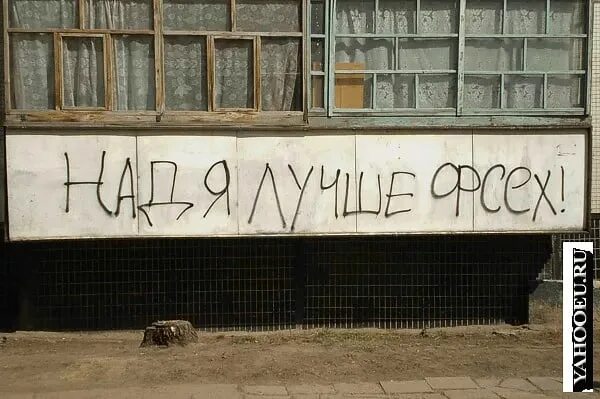 НАДЯ ЛУЧШЕ ФСЕХ!
YAHOOEU.RU